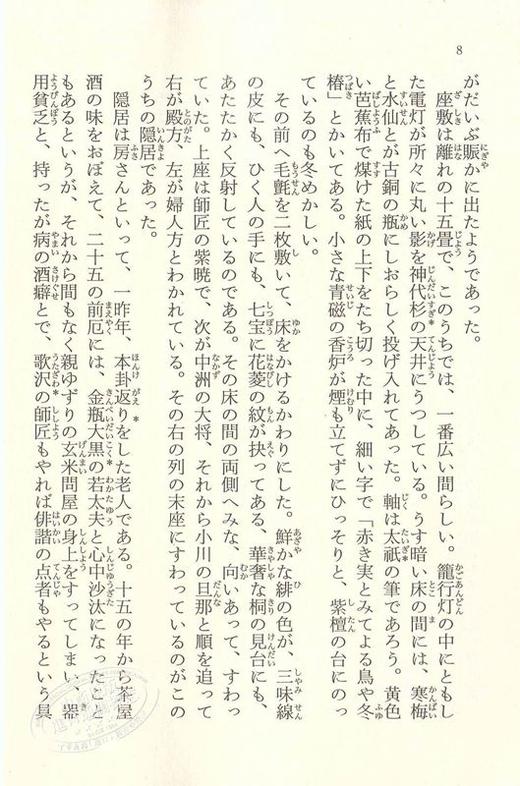 8
がだいぶ賑かに出たようであった。
座敷は離れの十五畳で、このうちでは、一番広い間らしい。籠行灯の中にともし
た電灯が所々に丸い影を神代杉の天井にうつしている。うす暗い床の間には、寒梅
と水仙とが古銅の瓶にしおらしく投げ入れてあった。軸は太祇の筆であろう。黄色
い芭蕉布で煤けた紙の上下をたち切った中に、細い字で「赤き実とみてよる鳥や冬
椿」とかいてある。小さな青磁の香炉が煙も立てずにひっそりと、紫檀の台にのっ
ているのも冬めかしい。
その前へ毛氈を二枚敷いて、床をかけるかわりにした。鮮かな緋の色が、三味線
の皮にも、ひく人の手にも、七宝に花菱の紋が抉ってある、華奢な桐の見台にも、
あたたかく反射しているのである。その床の間の両側へみな、向いあって、すわっ
ていた。上座は師匠の紫暁で、次が中洲の大将、それから小川の旦那と順を追って
右が殿方、左が婦人方とわかれている。その右の列の末座にすわっているのがこの
うちの隠居であった。
隠居は房さんといって、一昨年、本卦返りをした老人である。十五の年から茶屋
酒の味をおぼえて、二十五の前厄には、金瓶大黒の若太夫と心中沙汰になったこと
もあるというが、それから間もなく親ゆずりの玄米問屋の身上をすってしまい、器
用貧乏と、持ったが病の酒癖とで、歌沢の師匠もやれば俳諧の点者もやるという具